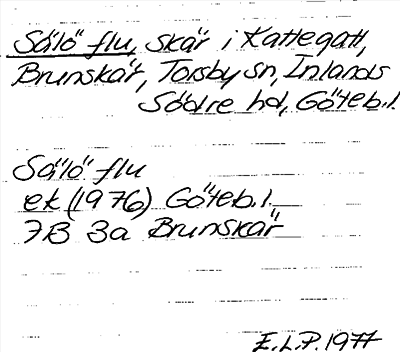 Sälö flu, skär i Kattegatt,
Brunskär, Torsby sn, Inlands
Södre hd, Göteb.l.
Sälö flu
ek (1976) Göteb.l.
7B 3a Brunskär
E.L.P. 1977